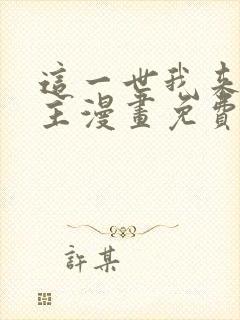 這一世我来
主漫畫免費
許某